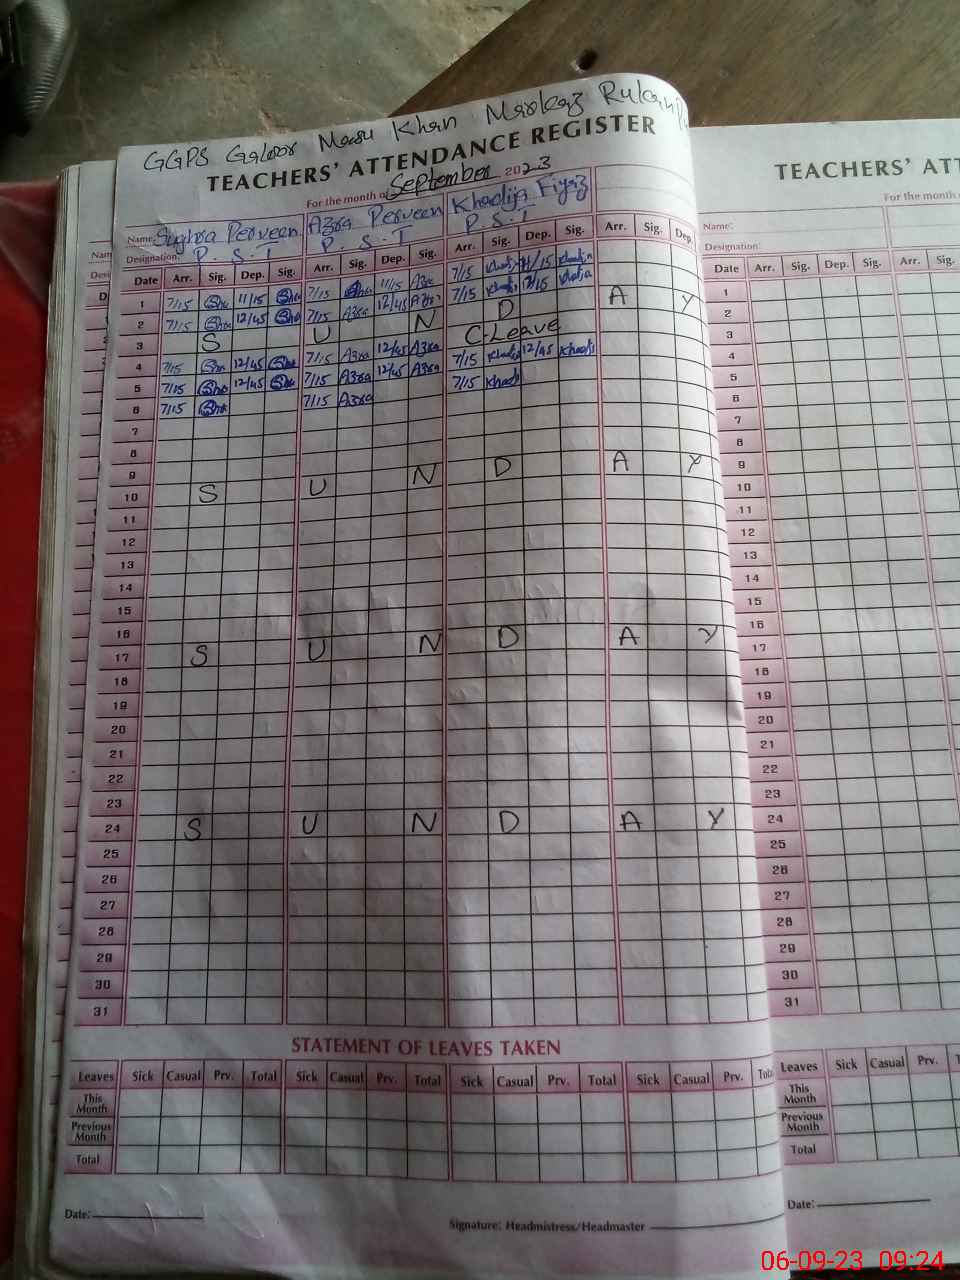 GGPS Galoor Masu Khan Markaz
TEACHERS' ATTENDANCE REGISTER
For the month of September 2023
Name: Sughra Perveen Azra Perveen Khadija Fiyaz
Designation: P.S.T P.S.T P.S.T
Date Arr. Sig. Dep. Sig. Arr. Sig. Dep. Sig. Arr. Sig. Dep. Sig. Arr. Sig. Dep.
1 7/15 11/15 7/15 11/15 Azra 7/15 11/15
2 7/15 12/45 7/15 Azra 12/45 Azra 7/15
3 S U N D A Y
4 7/15 12/45 7/15 Azra 12/45 Azra C-Leave
5 7/15 12/45 7/15 Azra 12/45 Azra 7/15 12/45
6 7/15 7/15 Azra 7/15
7
8
9
10 S U N D A Y
11
12
13
14
15
16
17 S U N D A Y
18
19
20
21
22
23
24 S U N D A Y
25
26
27
28
29
30
31
STATEMENT OF LEAVES TAKEN
Leaves Sick Casual Prv. Total Sick Casual Prv. Total Sick Casual Prv. Total Sick Casual Prv.
This
Month
Previous
Month
Total
Date:
Signature: Headmistress/Headmaster
TEACHERS'
For the month
Name:
Designation:
Date Arr. Sig. Dep. Sig. Arr. Sig.
1
2
3
4
5
6
7
8
9
10
11
12
13
14
15
16
17
18
19
20
21
22
23
24
25
26
27
28
29
30
31
Leaves Sick Casual Prv. Total Sick Casual Prv.
This
Month
Previous
Month
Total
Date:
06-09-23 09:24